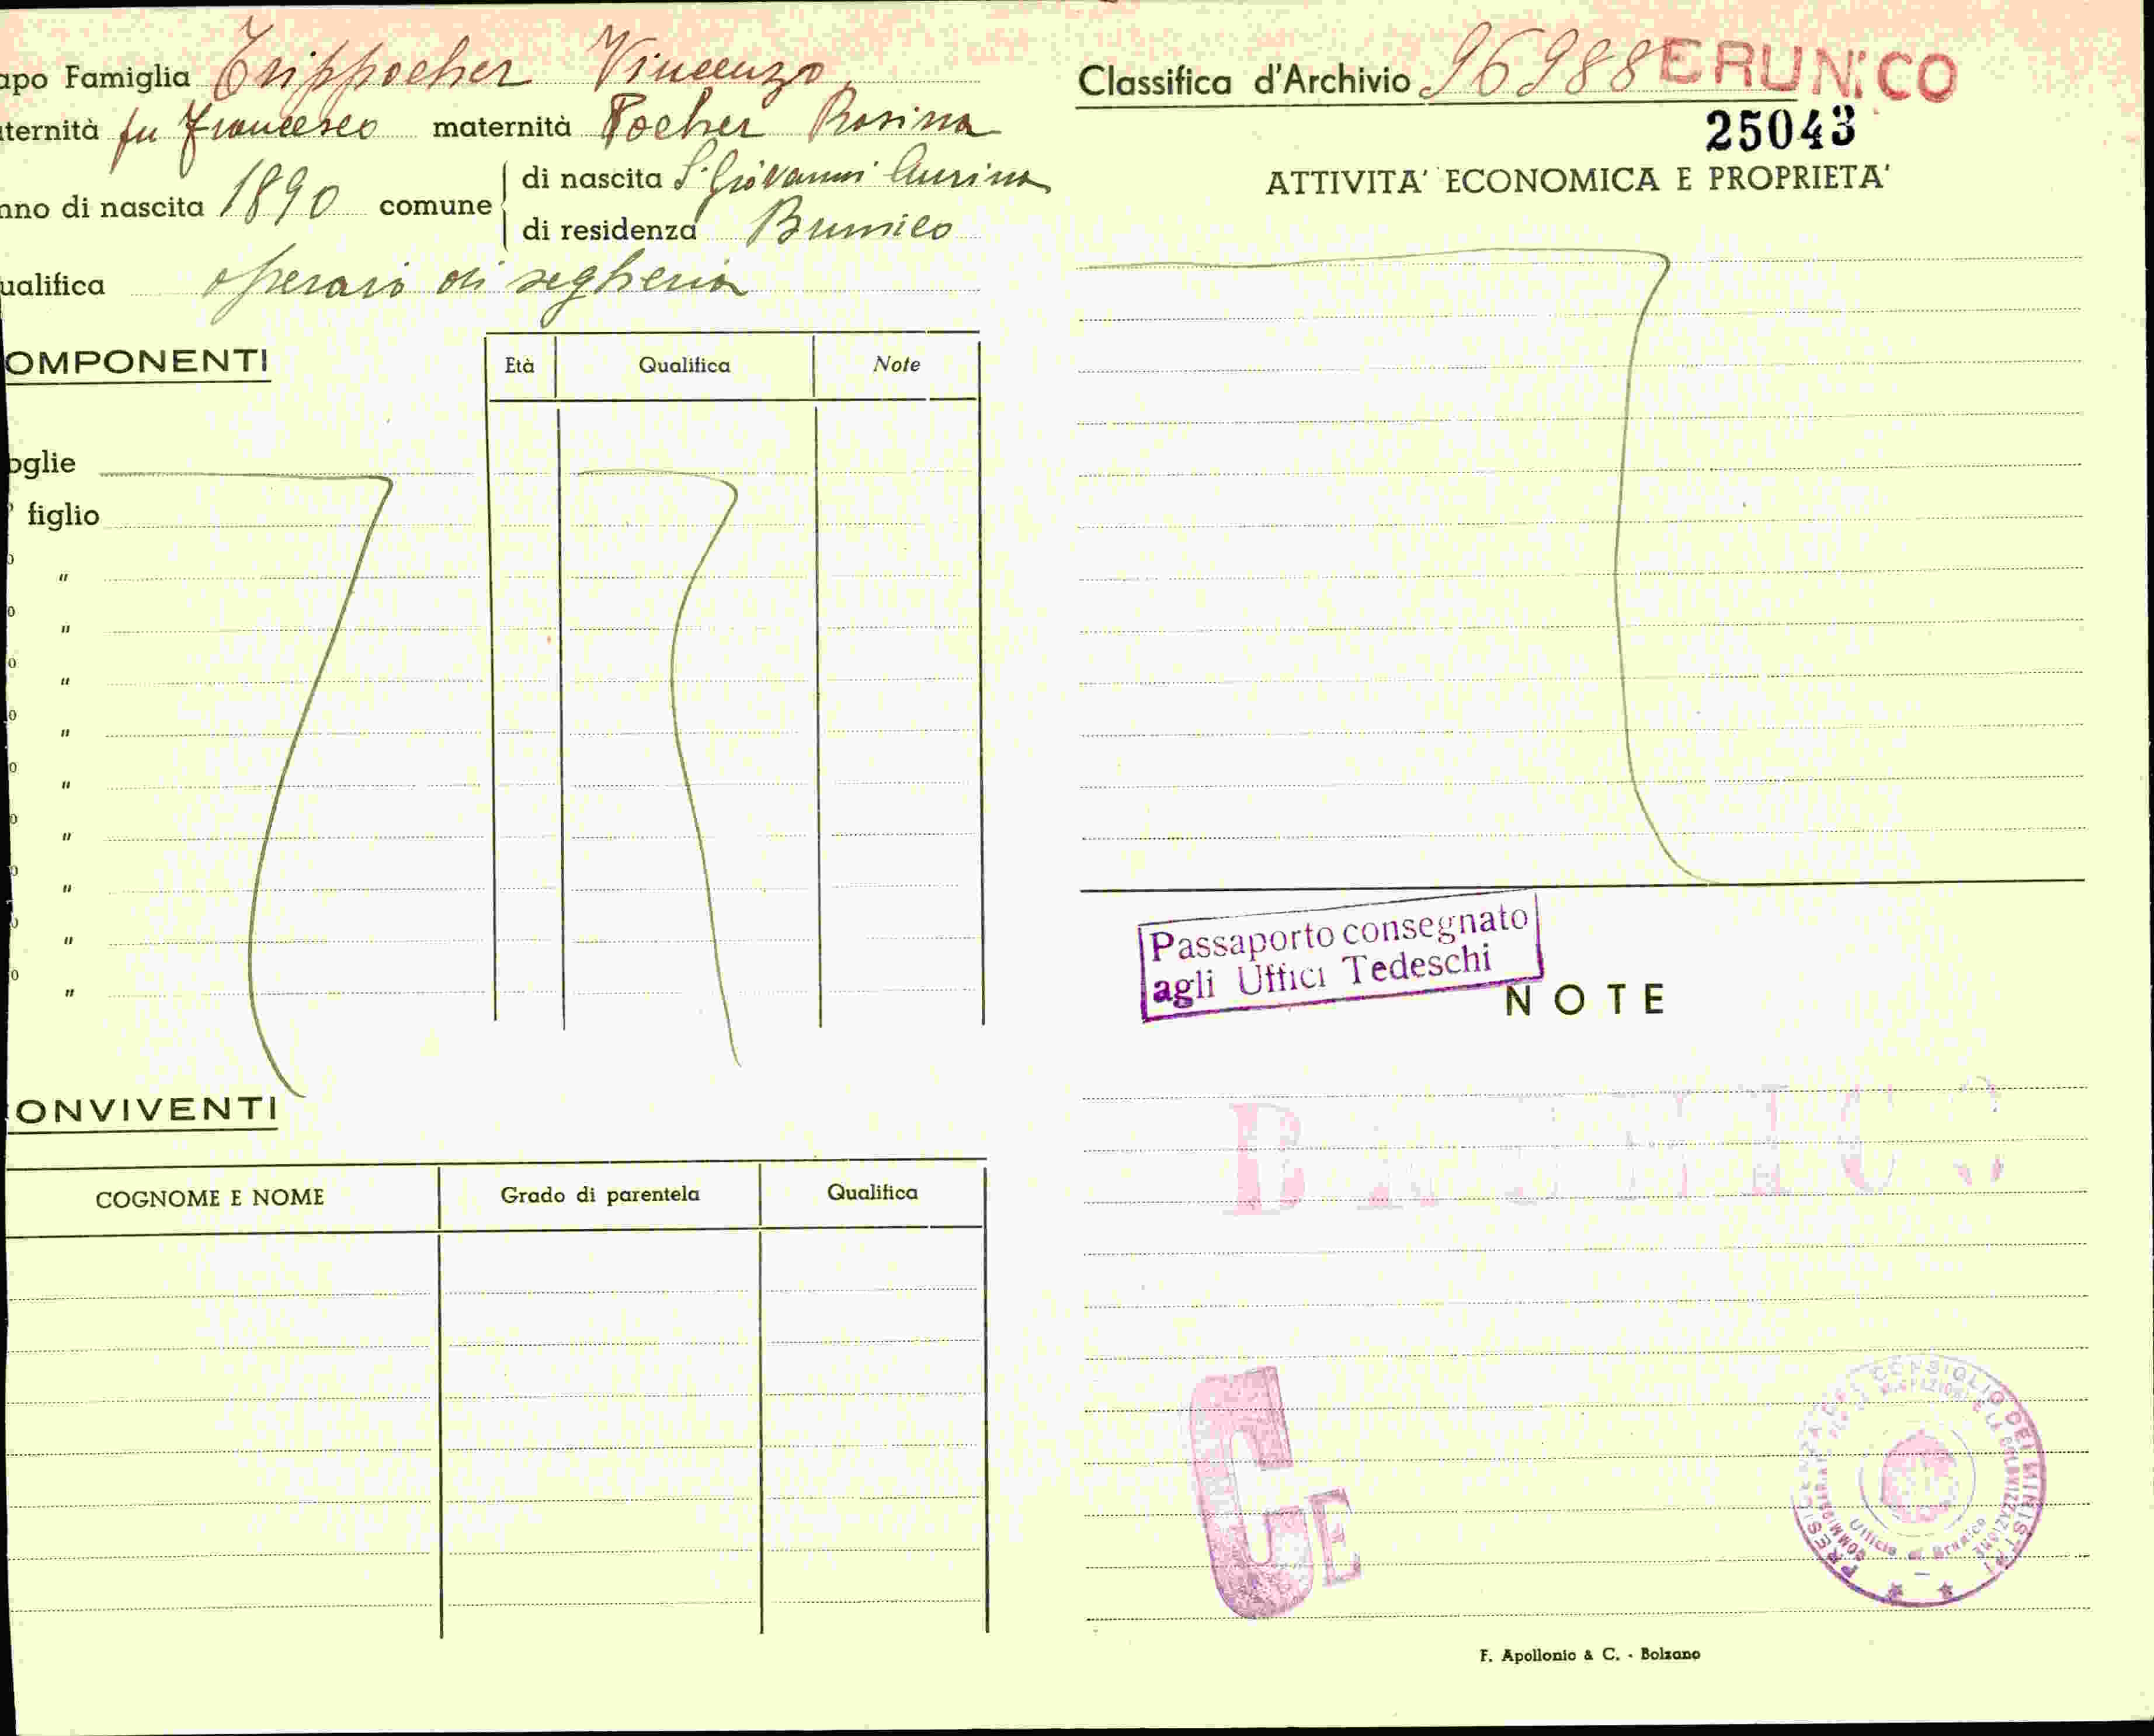 apo Famiglia Trippocher Vincenzo
ternità fu Francesco maternità Pocher Rosina
nno di nascita 1890 comune di nascita S. Giovanni Aurina
di residenza Brunico
ualifica operaio di segheria
OMPONENTI
Età Qualifica Note
oglie
figlio
"
"
"
"
"
"
"
"
"
ONVIVENTI
COGNOME E NOME Grado di parentela Qualifica
Classifica d'Archivio 96988 BRUNICO
25043
ATTIVITA' ECONOMICA E PROPRIETA'
Passaporto consegnato
agli Uffici Tedeschi
NOTE
BRUNICO
CE
PRESIDENZA DEL CONSIGLIO DEI MINISTRI
Ufficio di Brunico
F. Apollonio & C. - Bolzano